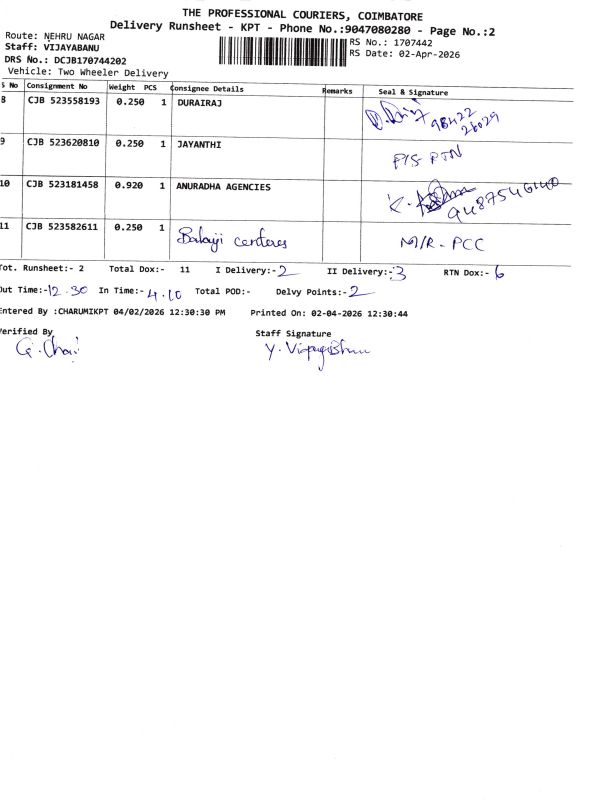 THE PROFESSIONAL COURIERS, COIMBATORE
Delivery Runsheet - KPT - Phone No.:9047080280 - Page No.:2
Route: NEHRU NAGAR
RS No.: 1707442
Staff: VIJAYABANU
RS Date: 02-Apr-2026
DRS No.: DCJB170744202
Vehicle: Two Wheeler Delivery
S No Consignment No Weight PCS Consignee Details Remarks Seal & Signature
8 CJB 523558193 0.250 1 DURAIRAJ
98422
26029
9 CJB 523620810 0.250 1 JAYANTHI P/S RTN
10 CJB 523181458 0.920 1 ANURADHA AGENCIES
9487546140
11 CJB 523582611 0.250 1 Balaji centeres N/R - PCC
Tot. Runsheet:- 2 Total Dox:- 11 I Delivery:- 2 II Delivery:- 3 RTN Dox:- 6
Out Time:- 12.30 In Time:- 4.10 Total POD:- Delvy Points:- 2
Entered By :CHARUMIKPT 04/02/2026 12:30:30 PM Printed On: 02-04-2026 12:30:44
Verified By Staff Signature
Y. VijayaBhanu